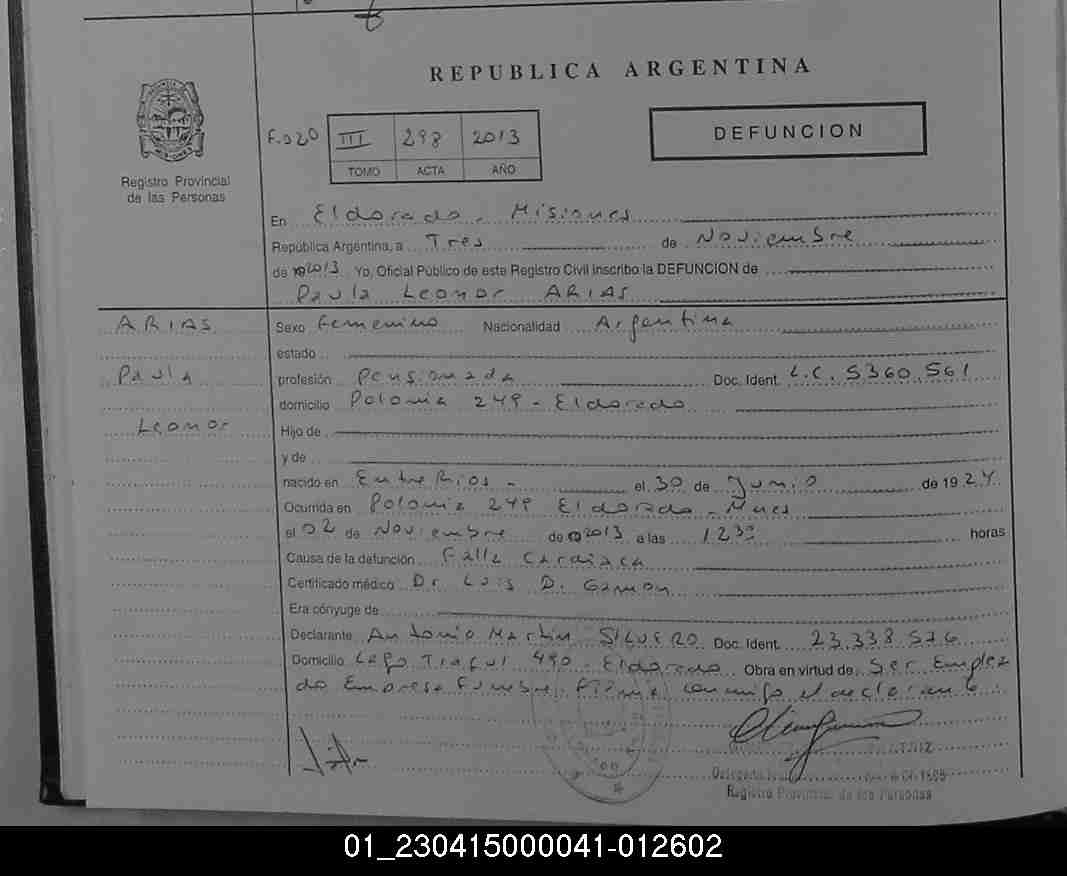 REPUBLICA ARGENTINA
DEFUNCION
F.020
III 298 2013
TOMO ACTA AÑO
Registro Provincial
de las Personas
En Eldorado, Misiones
República Argentina, a Tres de Noviembre
de 2013 Yo, Oficial Público de este Registro Civil inscribo la DEFUNCION de
Paula Leonor ARIAS
ARIAS
Paula
Leonor
Sexo Femenino Nacionalidad Argentina
estado
profesión Pensionada Doc. Ident. L.C. 5360.561
domicilio Polonia 249 - Eldorado
Hijo de
y de
nacido en Entre Rios - el 30 de Junio de 1924
Ocurrida en Polonia 249 Eldorado - Mnes
el 02 de Noviembre de 2013 a las 1230 horas
Causa de la defunción Falla Cardiaca
Certificado médico Dr Luis D. Gamon
Era cónyuge de
Declarante Antonio Martin SILVERO Doc. Ident. 23.338.576
Domicilio Lago 490 - Eldorado Obra en virtud de Ser Emplea
do Empresa Funebre. Firma conmigo el declarante
Registro Provincial de las Personas
01_230415000041-012602